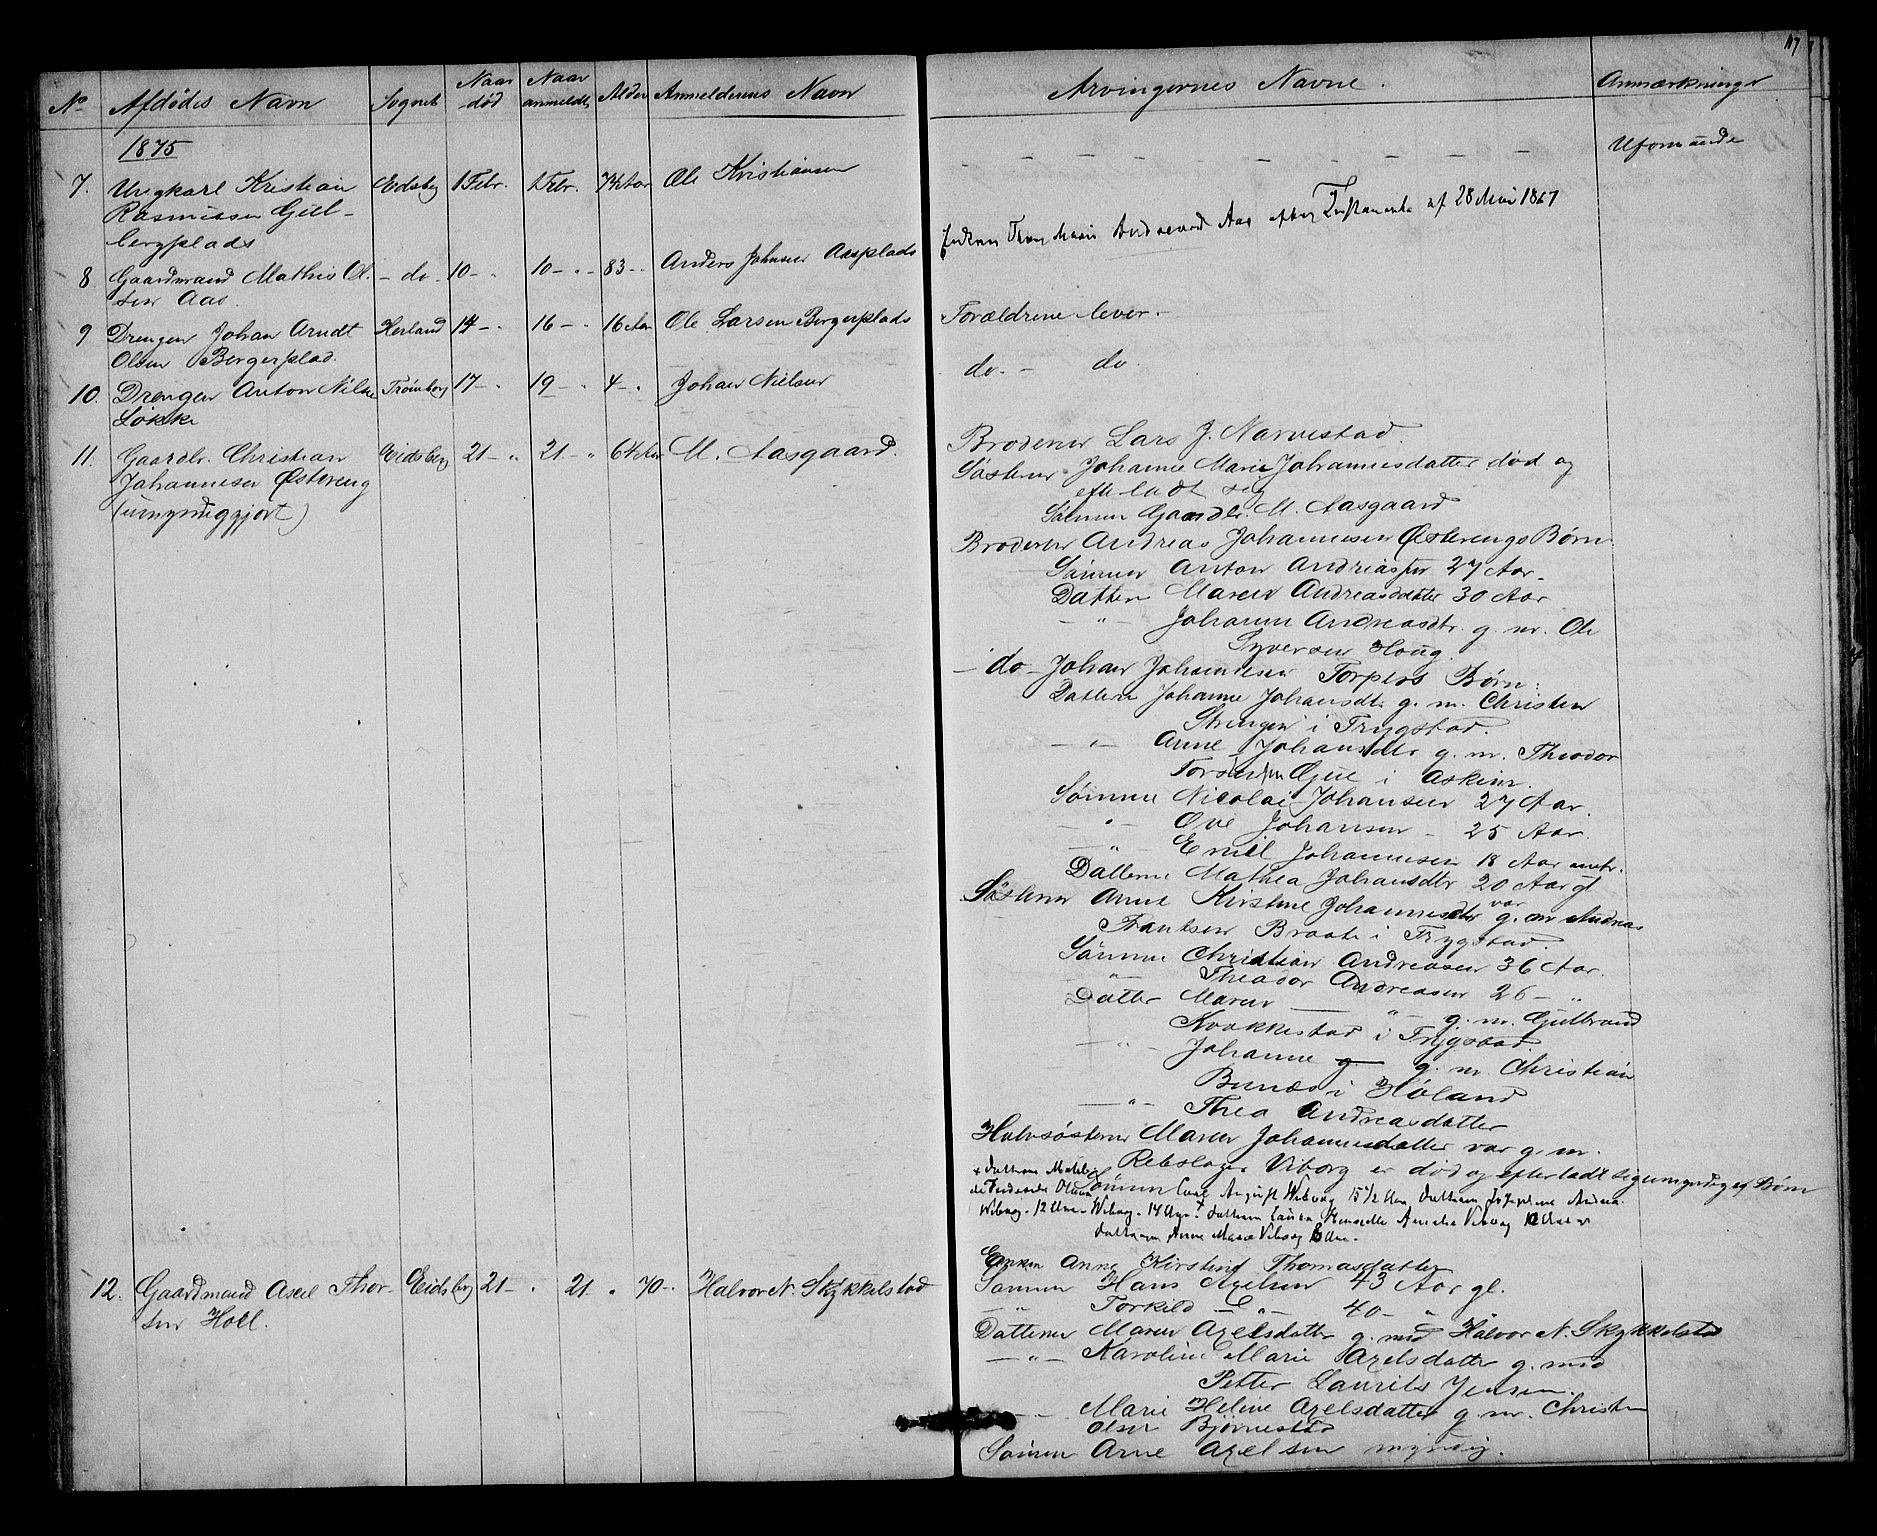 117
No Afdødes Navn Sognet Naar død Naar anmeldt Alder Anmelderens Navn Arvingernes Navne. Anmærkninger
1875
7. Ungkarl Kristian Eidsberg 1 Febr. 1 Febr. Ole Kristiansen — — — — — — — — — — Uformuende
Rasmussen Gul-
bergplads
8 Gaardmand Mathis Ol- - do - 10 - " 10 - " 83 - Anders Johnsen Aasplads
sen Aas.
Enken Marie Aas efter Testamente af 28 Mai 1867
9 Drengen Johan Arndt Herland 14 - " 16 - " 16 Aar Ole Larsen Bergerplads Forældrene lever.
Olsen Bergerplad.
10. Drengen Anton Nilsen Trømborg 17 - " 19 - " 4 - " Johan Nielsen do. - do.
Løkke
11. Gaardbr. Christian Eidsberg 21 - " 21 - " 64 Aar M. Aasgaard. Broderen Lars J. Narvestad.
Johannesen Østereng
(umyndiggjort)
Søsteren Johanne Marie Johannesdatter død og
efterladt sig
Sønnen Gaardbr. M. Aasgaard
Broderen Andreas Johannesen Østerengs Børn
Sønnen Anton Andreassen 27 Aar.
Datteren Maren Andreasdatter 30 Aar
- " - Johanne Andreasdtr. g. m. Ole
Syversen Houg.
- do - Johan Johannesen Torpers Børn:
Datteren Johanne Johansdtr g. m. Christen
Strengen i Trygstad.
- " - Anne Johansdtr g. m. Theodor
i Askim.
Sønnen Nicolai Johansen 27 Aar.
- " - Ove Johansen - 25 Aar.
- " - Emil Johannesen 18 Aar
Datteren Mathea Johansdtr 20 Aar gl
Søsteren Anne Kirstine Johannesdtr var g. m Andreas
Frantsen Braate i Trygstad.
Sønnen Christian Andreasen 36 Aar.
- " - Theodor Andreasen 26 - "
Datter Maren - " - g. m. Gulbrand
Kvakkestad i Trygstad.
- " - Johanne g. g. m. Christian
Bunæs i Høland
- " - Thea Andreasdatter
Halvsøsteren Maren Johannesdatter var g. m.
Rebslager Viborg er død og efterladt sig umyndige Børn
+ Datteren Mathilde Sønnen Carl August Wiborg 15 1/2 Aar, Datteren Josephine Andrea
Frederikke Olava
Wiborg - 12 Aar - Wiborg - 14 Aar + Datteren Laura Amalia Viborg 10 Aar
Datteren Anne Marie Viborg 8 Aar.
12. Gaardmand Axel Thor- Eidsberg 21 - " 21 " 70 - Halvor N. Skykkelstad Enken Anne Kirstine Thomasdatter
sen Holl.
Sønnen Hans Axelsen 43 Aar gl.
- " - Torkild - " - 40 - "
Datteren Maren Axelsdatter g. med Halvor N. Skykkelstad
- " - Karoline Marie Axelsdatter g. med
Petter Laurits Jensen.
- " - Marie Heline Axelsdatter g. m. Christen
Olsen Bjørnestad
Sønnen Arne Axelsen myndig.